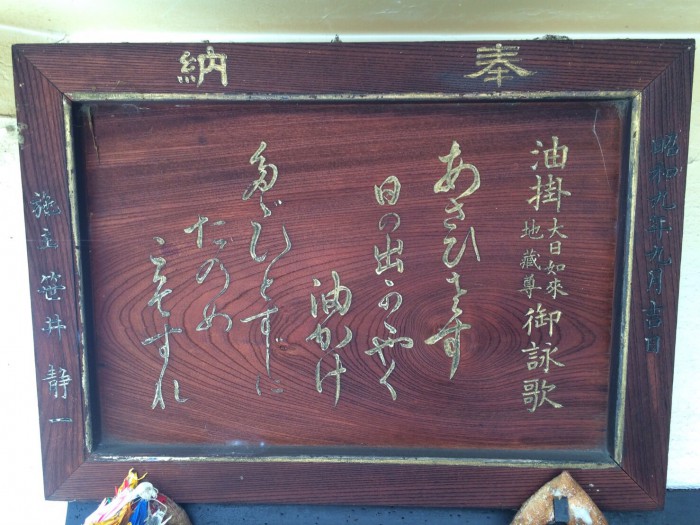 奉納
昭和九年九月吉日
油掛大日如來地藏尊御詠歌
あさひさす
日の出かゞやく
油かけ
多ゞひとすじに
たのめ
こそすれ
施主 笹井 静一